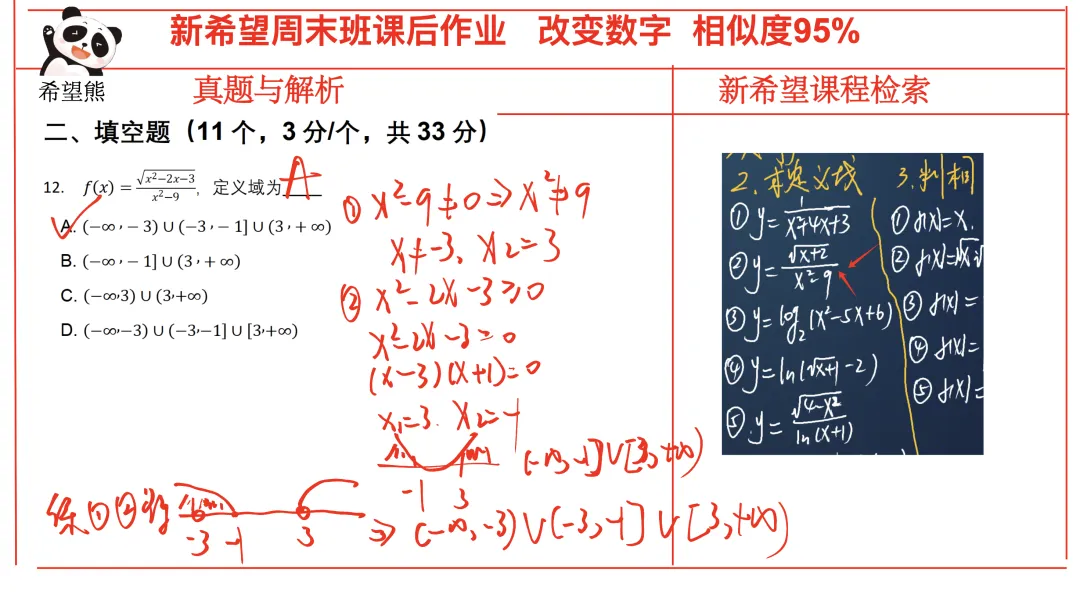 新希望周末班课后作业 改变数字 相似度95%
希望熊
真题与解析
新希望课程检索
二、填空题（11 个，3 分/个，共 33 分）
12. f(x)=√(x²−2x−3)/(x²−9)，定义域为____ A
A. (−∞，−3)∪(−3，−1]∪(3，+∞)
B. (−∞，−1]∪(3，+∞)
C. (−∞,3)∪(3,+∞)
D. (−∞,−3)∪(−3,−1]∪[3,+∞)
① x²−9≠0⇒x²≠9
x≠−3、x₂=3
② x²−2x−3≥0
x²−2x−3=0
(x−3)(x+1)=0
x₁=3. x₂=−1
−1 3
(−∞,−1]∪[3,+∞)
综①②得
−3 −1 3
⇒(−∞,−3)∪(−3,−1]∪[3,+∞)
2.求定义域
① y=1/(x²+4x+3)
② y=√(x+2)/(x²−9)
③ y=log₂(x²−5x+6)
④ y=ln(√(x+1)−2)
⑤ y=√(4−x²)/ln(x+1)
3.判相
① f(x)=x.
② f(x)=√x·√
③ f(x)=
④ f(x)=
⑤ f(x)=